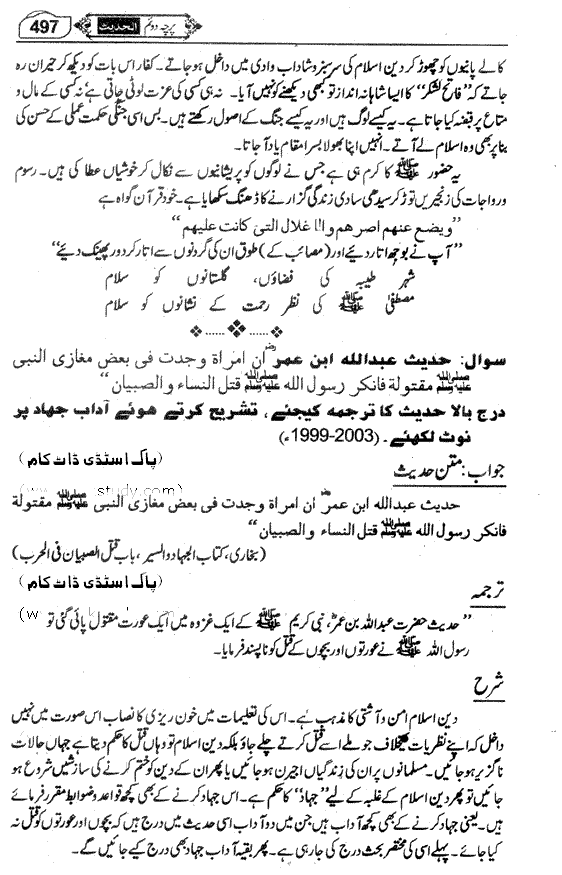 497 الحدیث پرچہ دوئم
کالے پانیوں کو چھوڑ کر دین اسلام کی سرسبز و شاداب وادی میں داخل ہو جاتے۔ کفار اس بات کو دیکھ کر حیران رہ
جاتے کہ "فاتح لشکر" کا ایسا شاہانہ انداز تو کبھی دیکھنے کو نہیں آیا۔ نہ ہی کسی کی عزت لوٹی جاتی ہے نہ کسی کے مال و
متاع پر قبضہ کیا جاتا ہے۔ یہ کیسے لوگ ہیں اور یہ کیسے جنگ کے اصول رکھتے ہیں۔ بس اسی جنگی حکمت عملی کے حسن کی
بنا پر بھی وہ اسلام لے آتے۔ انہیں اپنا بھولا بسرا مقام یاد آ جاتا۔
یہ حضور ﷺ کا کرم ہی ہے جس نے لوگوں کو پریشانیوں سے نکال کر خوشیاں عطا کی ہیں۔ رسوم
و رواجات کی زنجیریں توڑ کر سیدھی سادی زندگی گزارنے کا ڈھنگ سکھایا ہے۔ خود قرآن گواہ ہے
"ویضع عنهم اصرهم والا غلال التی کانت علیهم"
"آپ نے بوجھ اتار دیئے اور (مصائب کے) طوق ان کی گردنوں سے اتار کر دور پھینک دیئے"
شہر طیبہ کی فضاؤں، گلستانوں کو سلام
مصطفیٰ ﷺ کی نظر رحمت کے نشانوں کو سلام
سوال: حدیث عبدالله ابن عمرؓ ان امراة وجدت فی بعض مغازی النبی
ﷺ مقتولة فانکر رسول الله ﷺ قتل النساء والصبیان"
درج بالا حدیث کا ترجمہ کیجئے، تشریح کرتے ہوئے آداب جہاد پر
نوٹ لکھئے۔ (2003-1999ء)
جواب: متن حدیث (پاک اسٹڈی ڈاٹ کام)
حدیث عبدالله ابن عمرؓ ان امراة وجدت فی بعض مغازی النبی ﷺ مقتولة
فانکر رسول الله ﷺ قتل النساء والصبیان"
(بخاری، کتاب الجہاد والسیر، باب قتل الصبیان فی الحرب)
ترجمہ (پاک اسٹڈی ڈاٹ کام)
"حدیث حضرت عبداللہ بن عمرؓ، نبی کریم ﷺ کے ایک غزوہ میں ایک عورت مقتول پائی گئی تو
رسول اللہ ﷺ نے عورتوں اور بچوں کے قتل کو ناپسند فرمایا۔
شرح
دین اسلام امن و آشتی کا مذہب ہے۔ اس کی تعلیمات میں خون ریزی کا نصاب اس صورت میں نہیں
داخل کہ اپنے نظریات کے خلاف جو ملے اسے قتل کرتے چلے جاؤ بلکہ دین اسلام تو وہاں قتل کا حکم دیتا ہے جہاں حالات
ناگزیر ہو جائیں۔ مسلمانوں پر ان کی زندگیاں اجیرن ہو جائیں یا پھر ان کے دین کو ختم کرنے کی سازشیں شروع ہو
جائیں تو پھر دین اسلام کے غلبہ کے لیے "جہاد" کا حکم ہے۔ اس جہاد کرنے کے بھی کچھ قواعد و ضوابط مقرر فرمائے
ہیں۔ یعنی جہاد کرنے کے بھی کچھ آداب ہیں جن میں دو آداب اسی حدیث میں درج ہیں کہ بچوں اور عورتوں کو قتل نہ
کیا جائے۔ پہلے اسی کی مختصر بحث درج کی جا رہی ہے۔ پھر بقیہ آداب جہاد بھی درج کیے جائیں گے۔